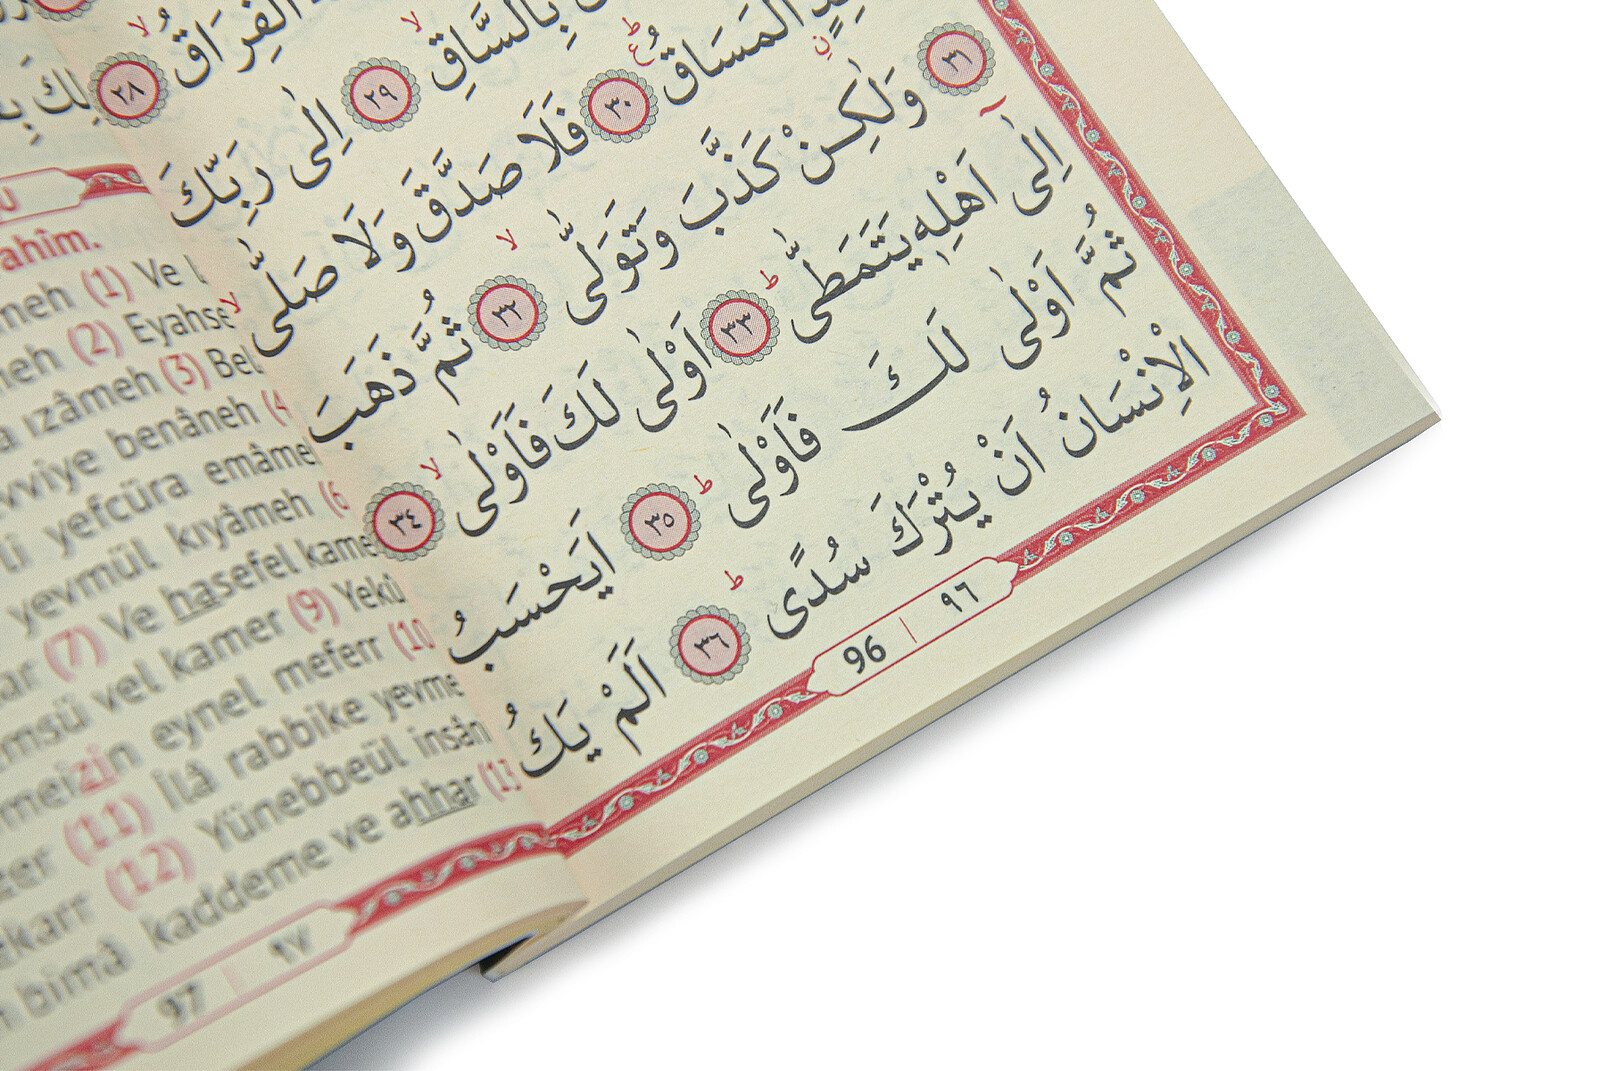 الْفِرَاقُ ٢٨
بِالسَّاقِ ٢٩ اِلٰى رَبِّكَ
الْمَسَاقُ ٣٠ فَلَا صَدَّقَ وَلَا صَلّٰى
٣١ وَلٰكِنْ كَذَّبَ وَتَوَلّٰى ٣٢ ثُمَّ ذَهَبَ
اِلٰٓى اَهْلِه۪ يَتَمَطّٰى ٣٣ اَوْلٰى لَكَ فَاَوْلٰى ٣٤
ثُمَّ اَوْلٰى لَكَ فَاَوْلٰى ٣٥ اَيَحْسَبُ
الْاِنْسَانُ اَنْ يُتْرَكَ سُدًى ٣٦ اَلَمْ يَكُ
96 | ٩٦
ahîm.
meh (1) Ve
meh (2) Eyahse
a ızâmeh (3) Bel
vviye benâneh (4
li yefcüra emâme
yevmül kıyâmeh (6
ar (7) Ve hasefel kame
msü vel kamer (9) Yekû
meizin eynel meferr (10
zer (11) İlâ rabbike yevme
ekarr (12) Yünebbeül insân
n bimâ kaddeme ve ahhar (13
97 | ٩٧